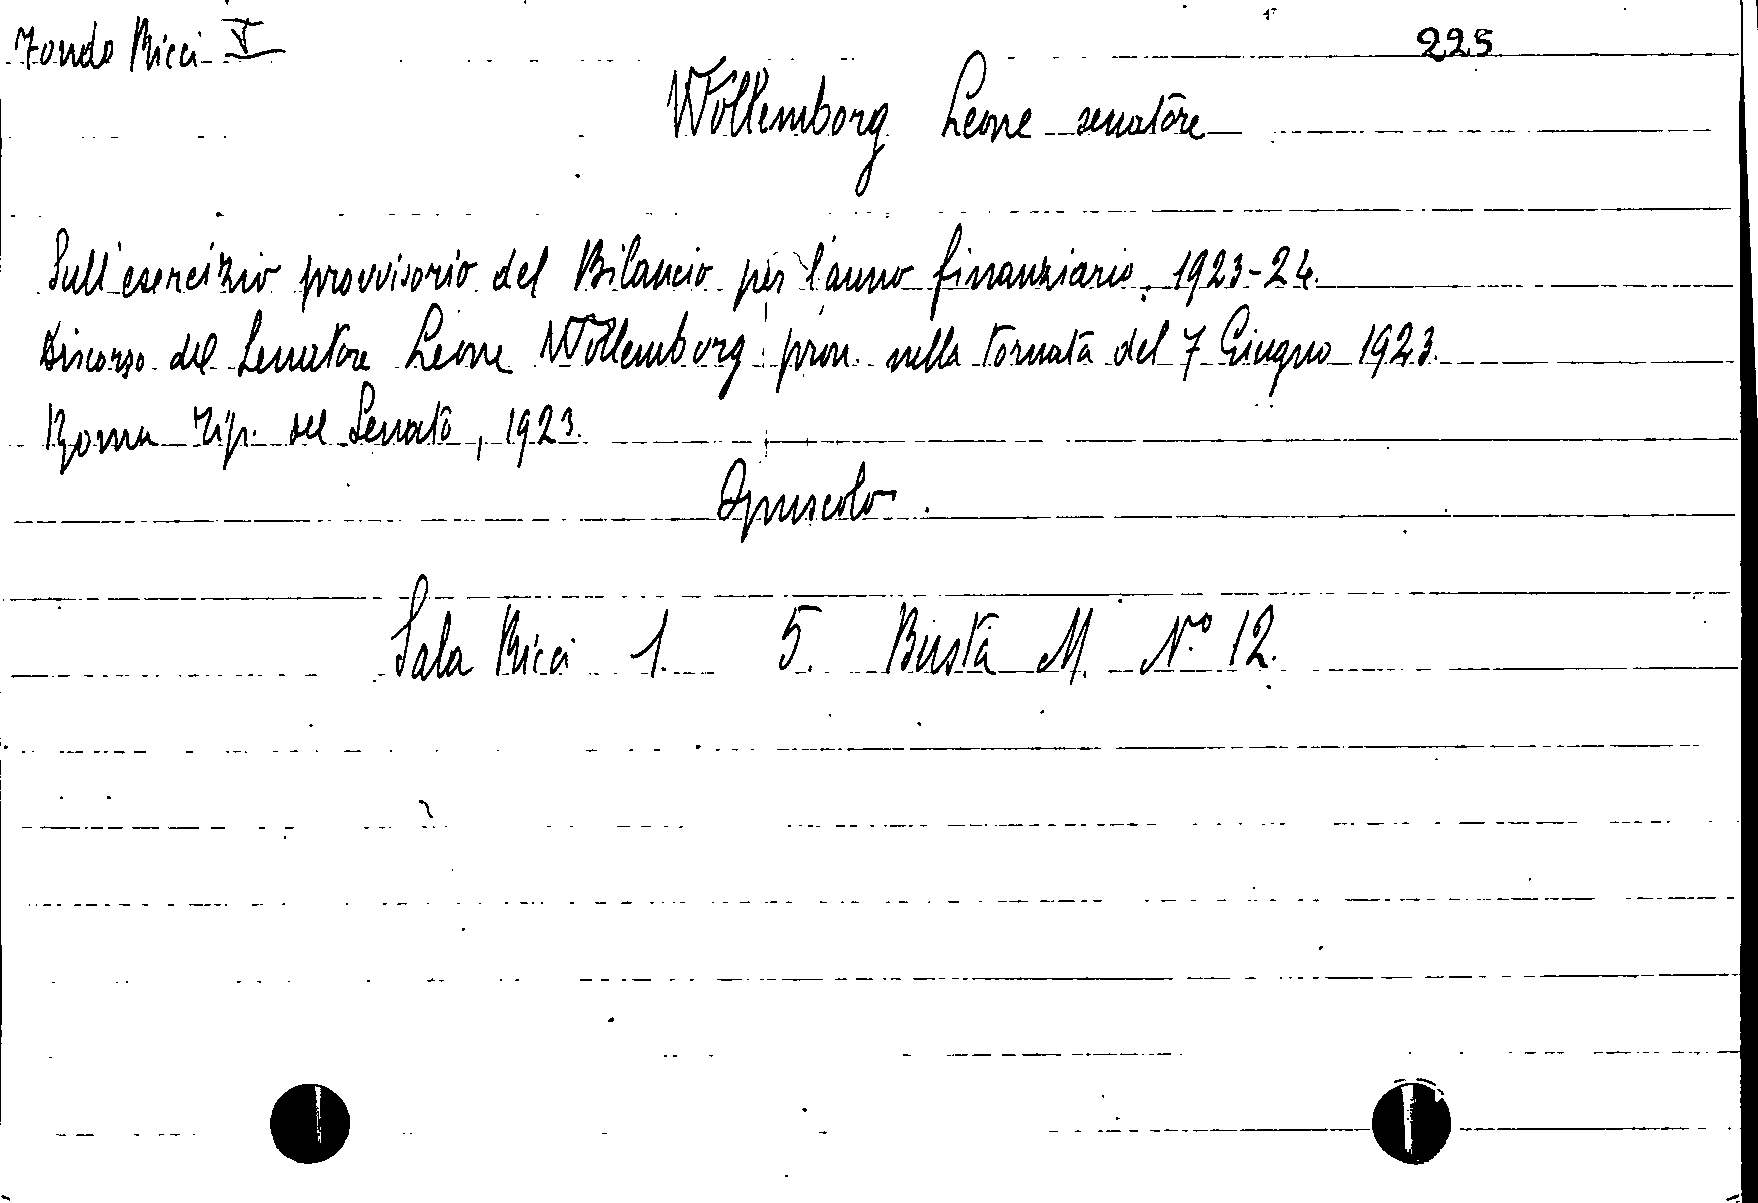 Fondo Ricci I 225
Wollemborg Leone senatore
Sull'esercizio provvisorio del Bilancio per l'anno finanziario, 1923-24.
Discorso del Senatore Leone Wollemborg pron. nella tornata del 7 Giugno 1923.
Roma Tip. del Senato, 1923.
Opuscolo.
Sala Ricci 1. 5. Busta M. N.º 12.